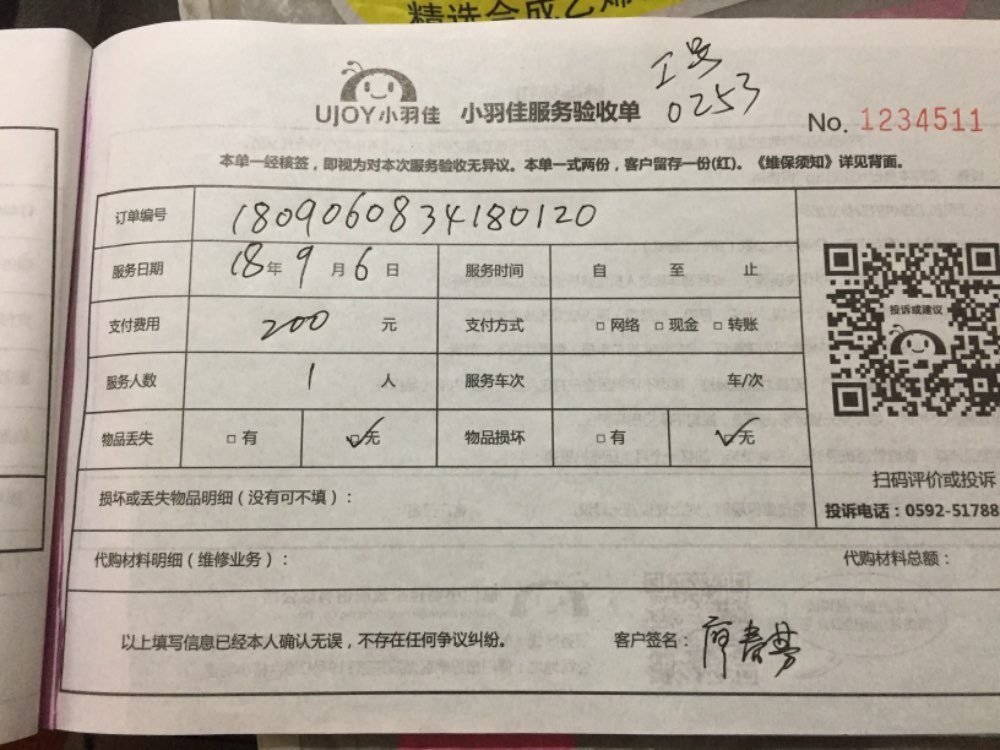 精选合成乙烯
工号
0253
UJOY小羽佳 小羽佳服务验收单
No. 1234511
本单一经核签，即视为对本次服务验收无异议。本单一式两份，客户留存一份(红)。《维保须知》详见背面。
订单编号 1809060834180120
服务日期 18年 9月 6日 服务时间 自 至 止
投诉或建议
支付费用 200 元 支付方式 □网络 □现金 □转账
服务人数 1 人 服务车次 车/次
物品丢失 □有 ☑无 物品损坏 □有 ☑无
扫码评价或投诉
损坏或丢失物品明细（没有可不填）：
投诉电话：0592-51788
代购材料明细（维修业务）： 代购材料总额：
以上填写信息已经本人确认无误，不存在任何争议纠纷。 客户签名：廖春